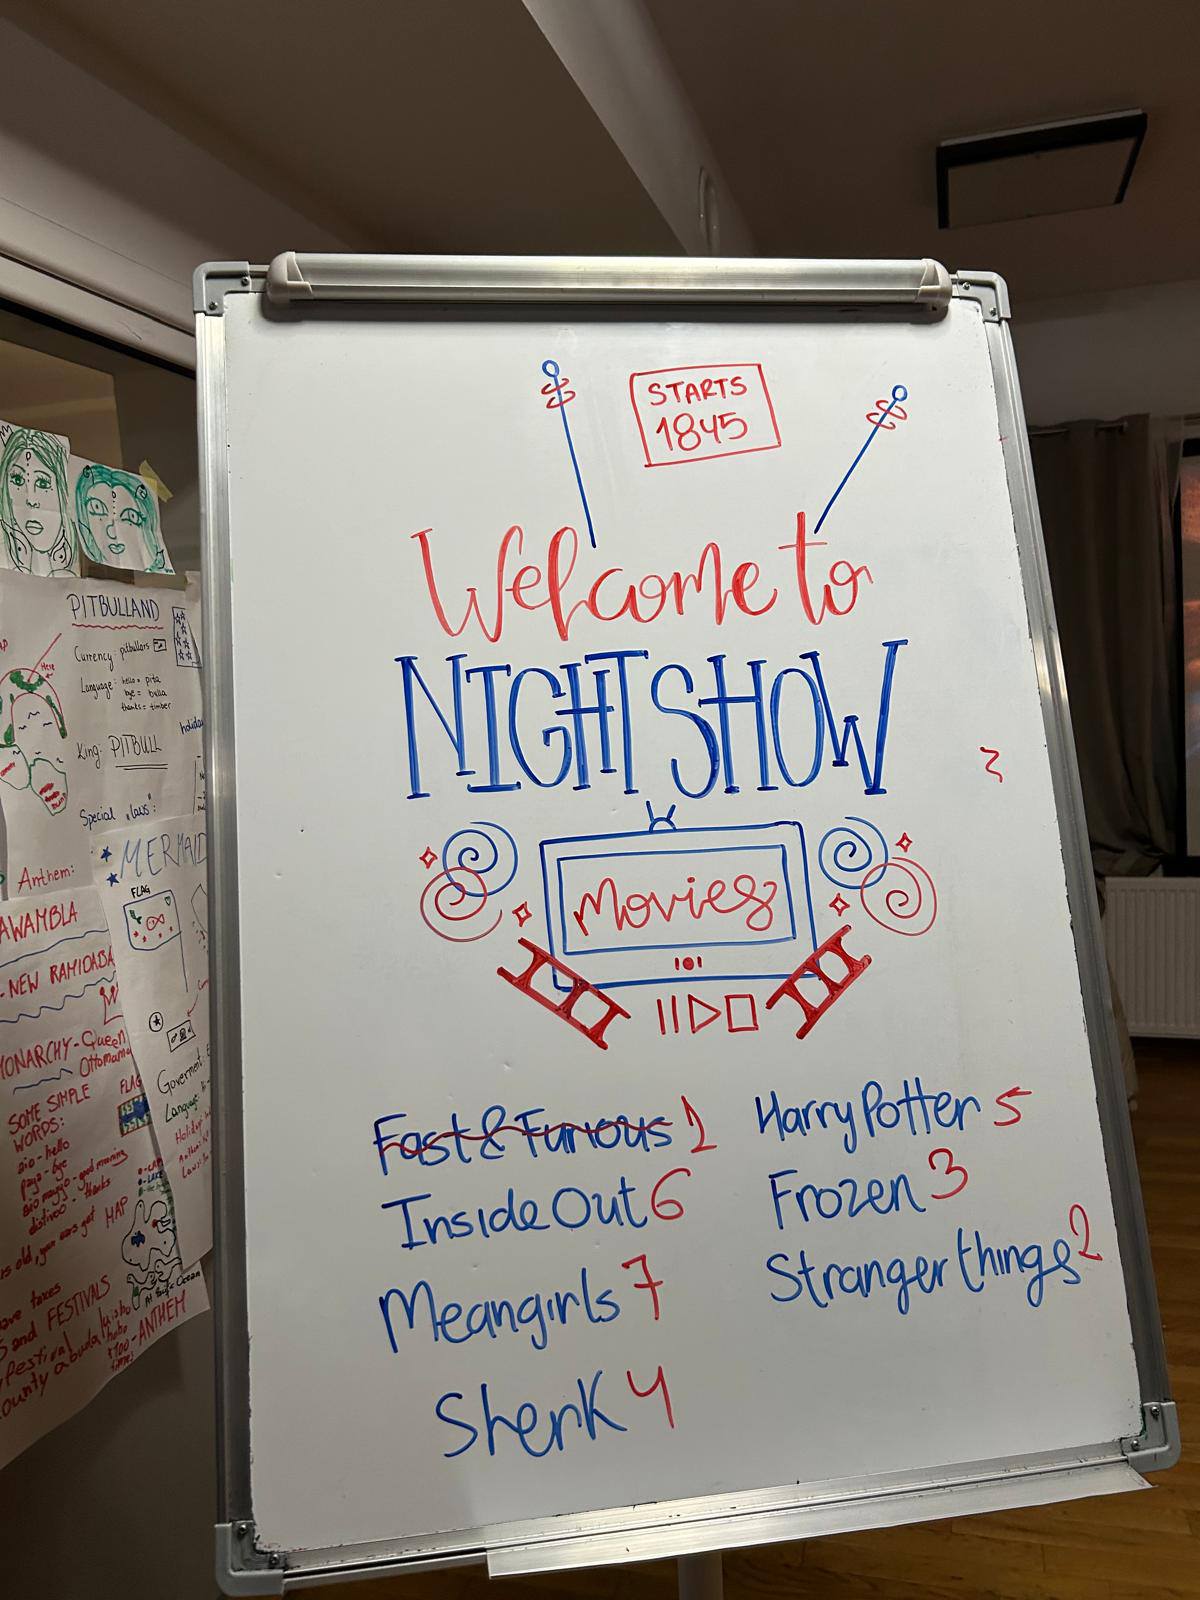 STARTS
1845
Welcome to
NIGHT SHOW
Movies
Fast & Furious 1
Inside Out 6
Meangirls 7
Sherk 4
Harry Potter 5
Frozen 3
Stranger things 2
PITBULLAND
Currency: pitbullars
Language: hello = pita
bye = bulla
thanks = timber
Here
King: PITBULL
Special „laws":
Anthem:
MERMAID
FLAG
AWAMBLA
- NEW RAMIDABA
MONARCHY - Queen
Ottomama
SOME SIMPLE
WORDS:
aio - hello
paya - bye
aio mayjo - good morning
distivoo - thanks
FLAG
MAP
Goverment:
Language:
Holiday:
and FESTIVALS
ANTHEM